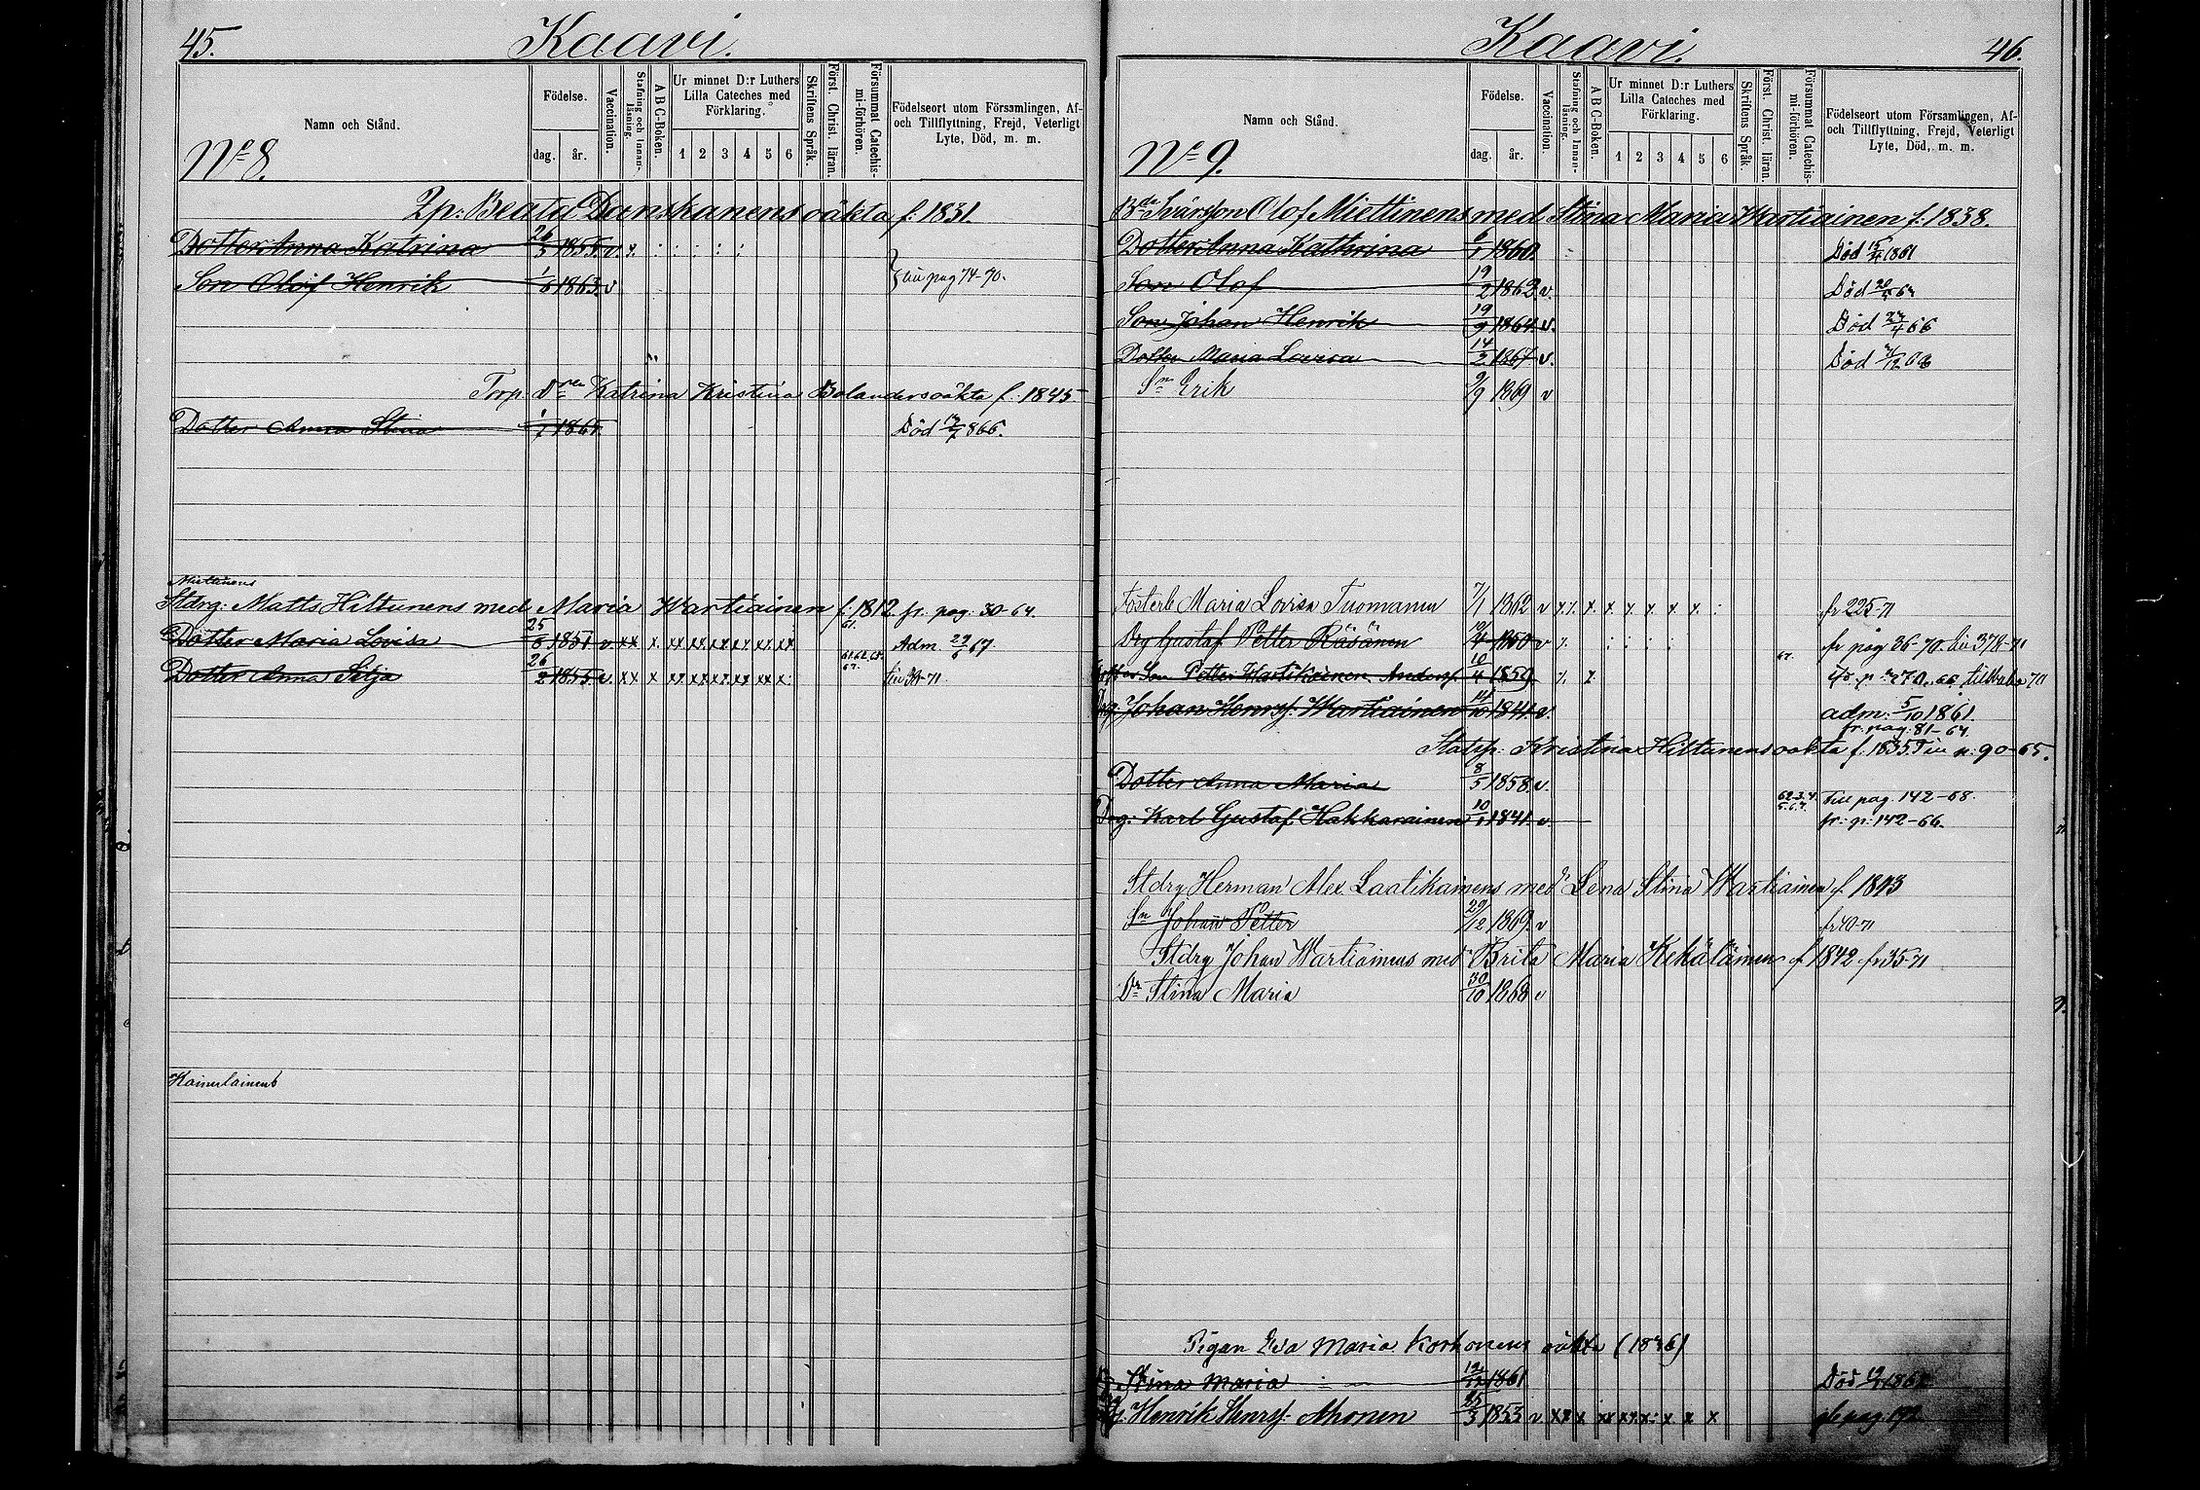 45.
Kaavi.
Namn och Stånd.
Födelse.
dag. år.
Vaccination.
Stafning och Innan-läsning.
A B C-Boken.
Ur minnet D:r Luthers Lilla Cateches med Förklaring.
1 2 3 4 5 6
Skriftens Språk.
Först. Christ. läran.
Försummat Catechis-mi-förhören.
Födelseort utom Församlingen, Af- och Tillflyttning, Frejd, Veterligt Lyte, Död, m. m.
No 8.
Beata Danskanens oäkta f. 1831.
Dotter Anna Katrina 26/5 1855. v. x.
Son Olof Henrik 1/6 1863. v pag 74-70.
Torp. Katrina Kristina Bolanders oäkta f. 1845
Dotter Anna Stina 1/7 1865. Död 866.
Miettinens
Stdrg: Matts Hiltunens med Maria Wartiainen f. 1812. fr. pag. 30-64.
Dotter Maria Lovisa 25/8 1851 v xx x. Adm. 29/6 67.
Dotter Anna Silja 26/2 1855. v. xx x 71.
Kainulainens
46.
Kaavi.
Namn och Stånd.
Födelse.
dag. år.
Vaccination.
Stafning och Innan-läsning.
A B C-Boken.
Ur minnet D:r Luthers Lilla Cateches med Förklaring.
1 2 3 4 5 6
Skriftens Språk.
Först. Christ. läran.
Försummat Catechis-mi-förhören.
Födelseort utom Församlingen, Af- och Tillflyttning, Frejd, Veterligt Lyte, Död, m. m.
No 9.
Olof Miettinens med Stina Maria Wartiainen f. 1838.
Dotter Anna Kathrina 6/1 1860. Död 15/4 1861
Son Olof 19/2 1862 v. Död
Son Johan Henrik 19/9 1864. v. Död 66
Dotter Maria Lovisa 14/2 1867. v. Död
Sn Erik 9/9 1869 v
Maria Lovisa 7/1 1862 v x x. x x x x x. : fr 225-71
Drg Gustaf Petter Räsänen 1850 v x. : : : : fr pag 36-70. 378-71
Son Petter Hartikainen Andersf. 10/4 1859 x. x 67.
Drg. Johan Henrsf. Wartiainen 14/10 1841. v. adm: 5/10 1861.
fr. pag. 81-64.
Kristina Hiltunens oäkta f. 1835. p. 90-65.
Dotter Anna Maria 8/5 1858. v.
Drg. Karl Gustaf Hakkarainen 10/1 1841. v. pag. 142-68.
fr: p: 142-66.
Stdrg Herman Alex. Laatikainens med Lena Stina Wartiainen f. 1843
Sn Johan Petter 29/12 1869. v fr 40-71
Stdrg Johan Wartiainens med Brita Maria Kekäläinen f 1842 fr 35-71
Dr Stina Maria 30/10 1868 v
Pigan Eva Maria Korhonens oäkta (1836)
Stina Maria 1861 Död
Henrik Henrsf. Ahonen 25/3 1853 v xx x xx xx x: x x x pag. 172